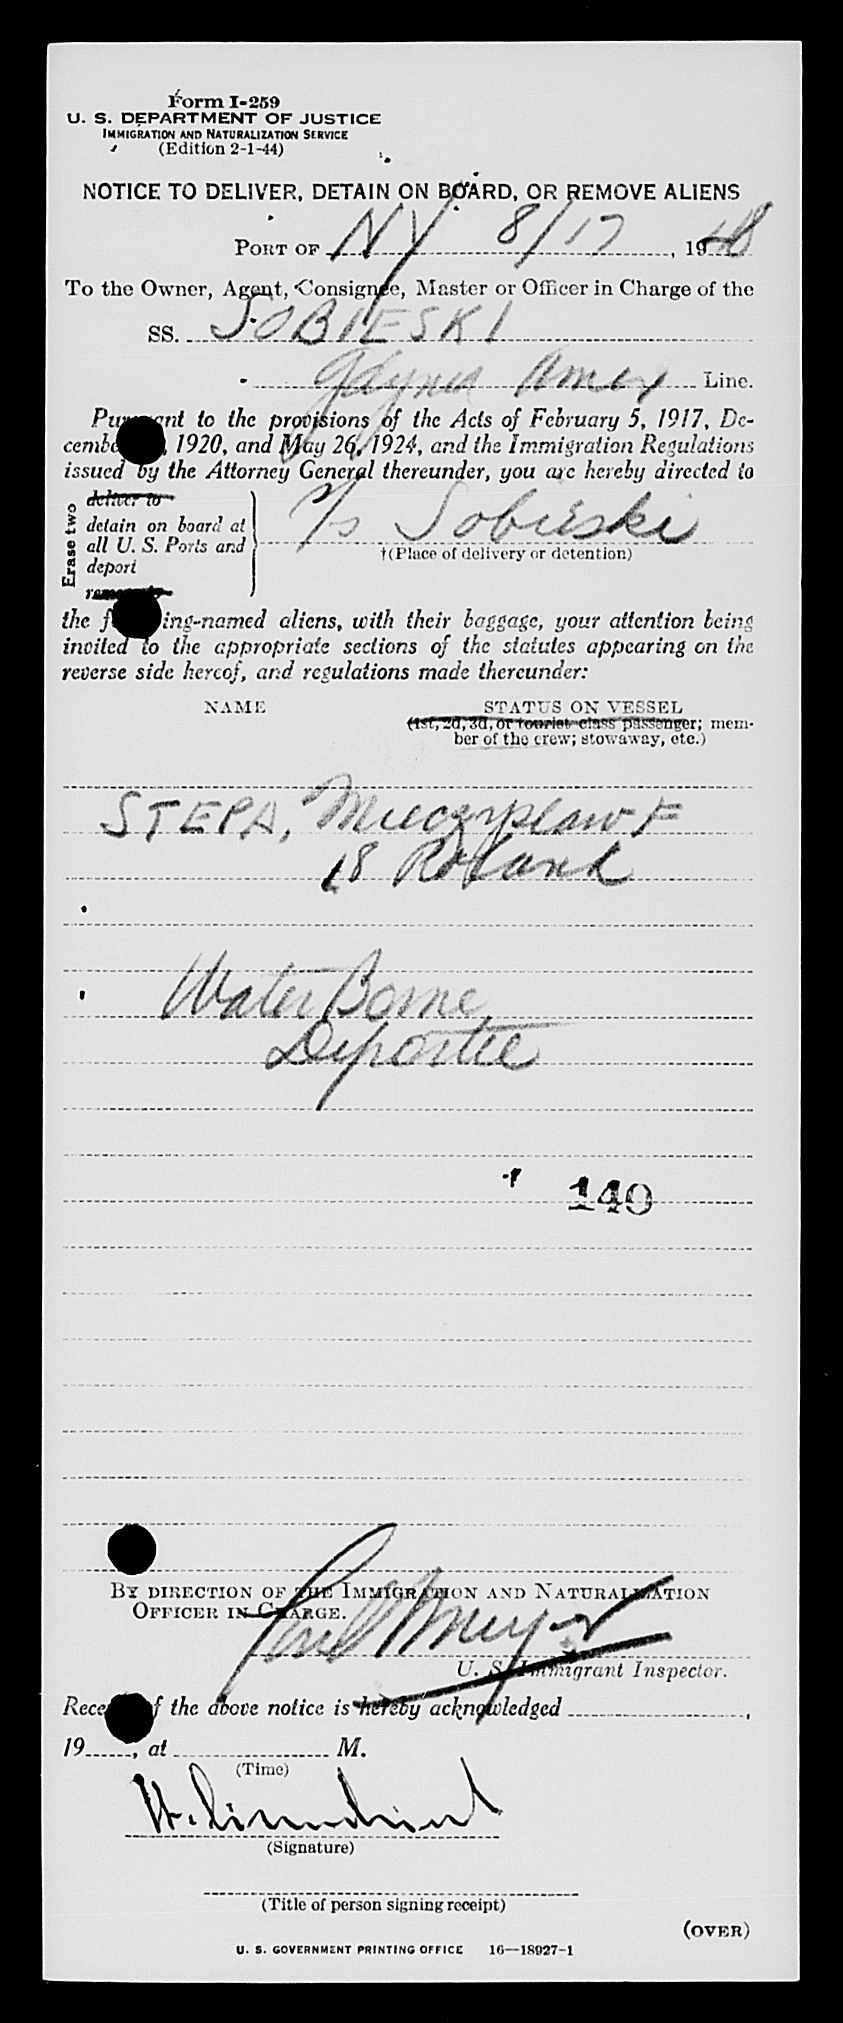 Form I-259
U. S. DEPARTMENT OF JUSTICE
IMMIGRATION AND NATURALIZATION SERVICE
(Edition 2-1-44)
NOTICE TO DELIVER, DETAIN ON BOARD, OR REMOVE ALIENS
PORT OF NY 8/17, 1948
To the Owner, Agent, Consignee, Master or Officer in Charge of the
SS. SOBIESKI
Gdynia Amer Line.
Pursuant to the provisions of the Acts of February 5, 1917, De-
cember , 1920, and May 26, 1924, and the Immigration Regulations
issued by the Attorney General thereunder, you are hereby directed to
Erase two
deliver to
detain on board at
all U. S. Ports and
deport
remove to
M/S Sobieski
†(Place of delivery or detention)
the f ing-named aliens, with their baggage, your attention being
invited to the appropriate sections of the statutes appearing on the
reverse side hereof, and regulations made thereunder:
NAME STATUS ON VESSEL
(1st, 2d, 3d, or tourist class passenger; mem-
ber of the crew; stowaway, etc.)
STEPA, F
18 Poland
Water Borne
Deportee
140
BY DIRECTION OF THE IMMIGRATION AND NATURALIZATION
OFFICER IN CHARGE.
U. S. Immigrant Inspector.
Rece f the above notice is hereby acknowledged ,
19 , at M.
(Time)
(Signature)
(Title of person signing receipt)
(OVER)
U. S. GOVERNMENT PRINTING OFFICE 16—18927-1